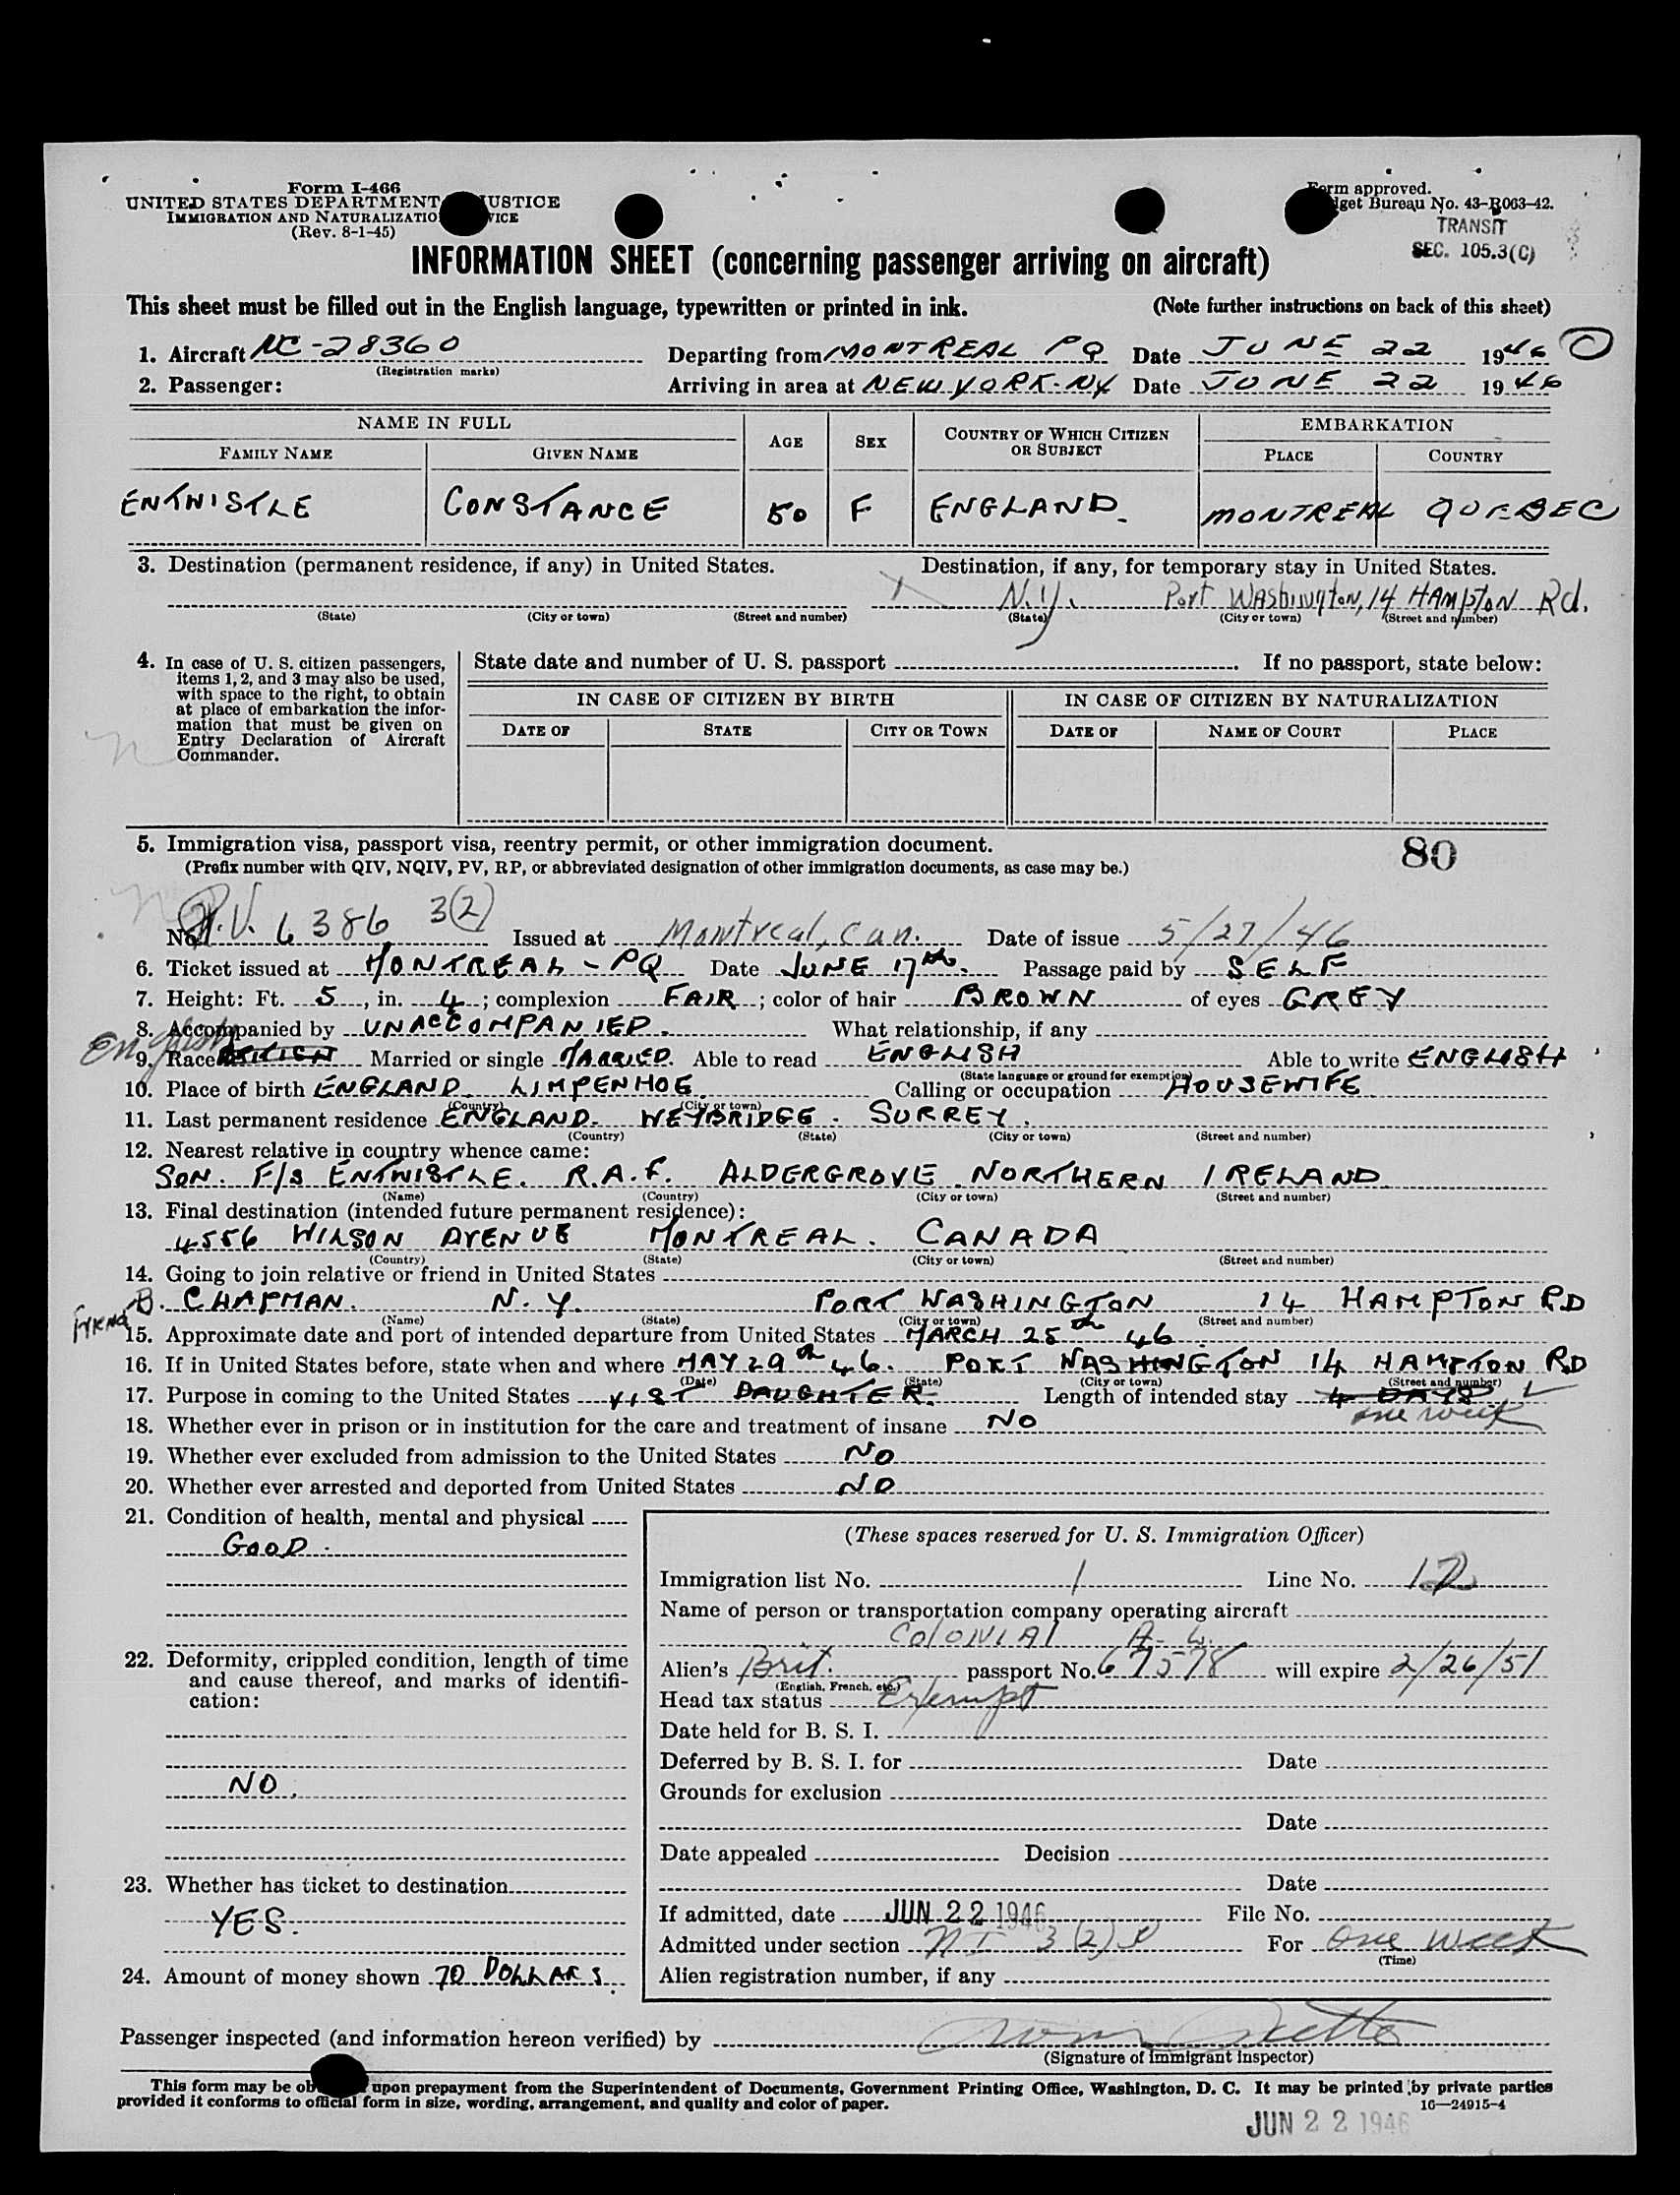 Form I-466
UNITED STATES DEPARTMENT JUSTICE
IMMIGRATION AND NATURALIZATIO VICE
(Rev. 8-1-45)
Form approved.
get Bureau No. 43-R063-42.
TRANSIT
SEC. 105.3(C)
INFORMATION SHEET (concerning passenger arriving on aircraft)
This sheet must be filled out in the English language, typewritten or printed in ink. (Note further instructions on back of this sheet)
1. Aircraft NC-28360 Departing from MONTREAL PQ Date JUNE 22 1946
(Registration marks)
2. Passenger: Arriving in area at NEW YORK-NY Date JUNE 22 1946
NAME IN FULL AGE SEX COUNTRY OF WHICH CITIZEN OR SUBJECT EMBARKATION
FAMILY NAME GIVEN NAME PLACE COUNTRY
ENTWISTLE CONSTANCE 50 F ENGLAND. MONTREAL QUEBEC
3. Destination (permanent residence, if any) in United States. Destination, if any, for temporary stay in United States.
N.Y. Port Washington, 14 HAMPTON Rd.
(State) (City or town) (Street and number) (State) (City or town) (Street and number)
4. In case of U. S. citizen passengers, items 1, 2, and 3 may also be used, with space to the right, to obtain at place of embarkation the information that must be given on Entry Declaration of Aircraft Commander.
State date and number of U. S. passport . If no passport, state below:
IN CASE OF CITIZEN BY BIRTH IN CASE OF CITIZEN BY NATURALIZATION
DATE OF STATE CITY OR TOWN DATE OF NAME OF COURT PLACE
5. Immigration visa, passport visa, reentry permit, or other immigration document. 80
(Prefix number with QIV, NQIV, PV, RP, or abbreviated designation of other immigration documents, as case may be.)
No. P.V. 6386 3(2) Issued at Montreal, Can. Date of issue 5/27/46
6. Ticket issued at MONTREAL - PQ Date JUNE 17th. Passage paid by SELF
7. Height: Ft. 5, in. 4; complexion FAIR; color of hair BROWN of eyes GREY
8. Accompanied by UNACCOMPANIED. What relationship, if any
English
9. Race BRITISH Married or single MARRIED. Able to read ENGLISH Able to write ENGLISH
(State language or ground for exemption)
10. Place of birth ENGLAND. LIMPENHOE. Calling or occupation HOUSEWIFE
(Country) (City or town)
11. Last permanent residence ENGLAND. WEYBRIDGE. SURREY.
(Country) (State) (City or town) (Street and number)
12. Nearest relative in country whence came:
SON. F/S ENTWISTLE. R.A.F. ALDERGROVE NORTHERN IRELAND
(Name) (Country) (City or town) (Street and number)
13. Final destination (intended future permanent residence):
4556 WILSON AVENUE MONTREAL. CANADA
(Country) (State) (City or town) (Street and number)
14. Going to join relative or friend in United States
FRIEND B. CHAPMAN. N.Y. PORT WASHINGTON 14 HAMPTON RD
(Name) (State) (City or town) (Street and number)
15. Approximate date and port of intended departure from United States MARCH 25th 46.
16. If in United States before, state when and where MAY 29th 46. PORT WASHINGTON 14 HAMPTON RD
(Date) (State) (City or town) (Street and number)
17. Purpose in coming to the United States VIST DAUGHTER. Length of intended stay 4 DAYS
one week
18. Whether ever in prison or in institution for the care and treatment of insane NO
19. Whether ever excluded from admission to the United States NO
20. Whether ever arrested and deported from United States NO
21. Condition of health, mental and physical
GOOD.
22. Deformity, crippled condition, length of time and cause thereof, and marks of identification:
NO.
23. Whether has ticket to destination
YES.
24. Amount of money shown 70 DOLLARS.
(These spaces reserved for U. S. Immigration Officer)
Immigration list No. 1 Line No. 12
Name of person or transportation company operating aircraft
COlONIAl A. L.
Alien's Brit. passport No. 67578 will expire 2/26/51
(English, French, etc.)
Head tax status Exempt
Date held for B. S. I.
Deferred by B. S. I. for Date
Grounds for exclusion
Date
Date appealed Decision
Date
If admitted, date JUN 22 1946 File No.
Admitted under section 3(2) For One week
(Time)
Alien registration number, if any
Passenger inspected (and information hereon verified) by
(Signature of Immigrant Inspector)
This form may be ob upon prepayment from the Superintendent of Documents, Government Printing Office, Washington, D. C. It may be printed by private parties
provided it conforms to official form in size, wording, arrangement, and quality and color of paper. 16—24915-4
JUN 22 1946